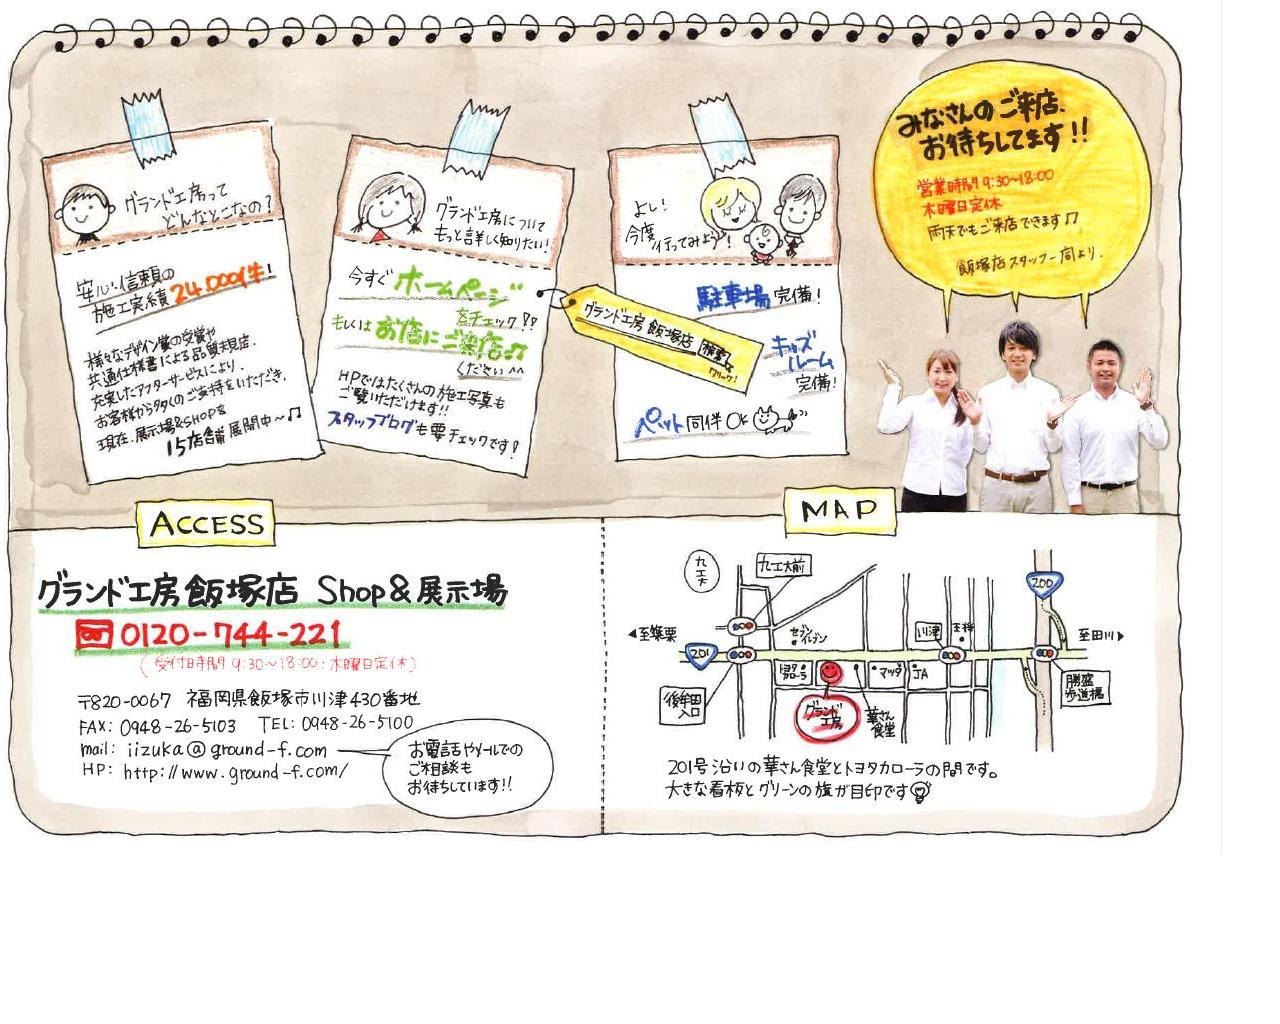 グランド工房って
どんなとこなの?
安心・信頼の
施工実績24,000件!
様々なデザイン賞の受賞や
共通仕様書による品質表現店.
充実したアフターサービスにより、
お客様から多くのご支持をいただき、
現在、展示場&SHOPを
15店舗展開中〜♫
グランド工房について
もっと詳しく知りたい!
今すぐホームページ
をチェック!!
もしくはお店にご来店♫
ください^^
HPではたくさんの施工写真も
ご覧いただけます!!
スタッフブログも要チェックです!
グランド工房 飯塚店 検索
クリック!
よし!
今度行ってみよう!
駐車場完備!
キッズ
ルーム
完備!
ペット同伴OK
みなさんのご来店、
お待ちしてます!!
営業時間 9:30〜18:00
木曜日定休
雨天でもご来店できます♫
飯塚店スタッフ一同より.
ACCESS
グランド工房飯塚店 Shop&展示場
0120-744-221
(受付時間 9:30〜18:00:木曜日定休)
〒820-0067 福岡県飯塚市川津430番地
FAX: 0948-26-5103 TEL: 0948-26-5100
mail: iizuka@ground-f.com
HP: http://www.ground-f.com/
お電話やメールでの
ご相談も
お待ちしています!!
MAP
九工大
九工大前
200
◀至篠栗
セブン
イレブン
川津
至田川▶
201
トヨタ
カローラ
マツダ
JA
後牟田
入口
グランド
工房
華さん
食堂
勝盛
歩道橋
201号沿いの華さん食堂とトヨタカローラの間です。
大きな看板とグリーンの旗が目印です